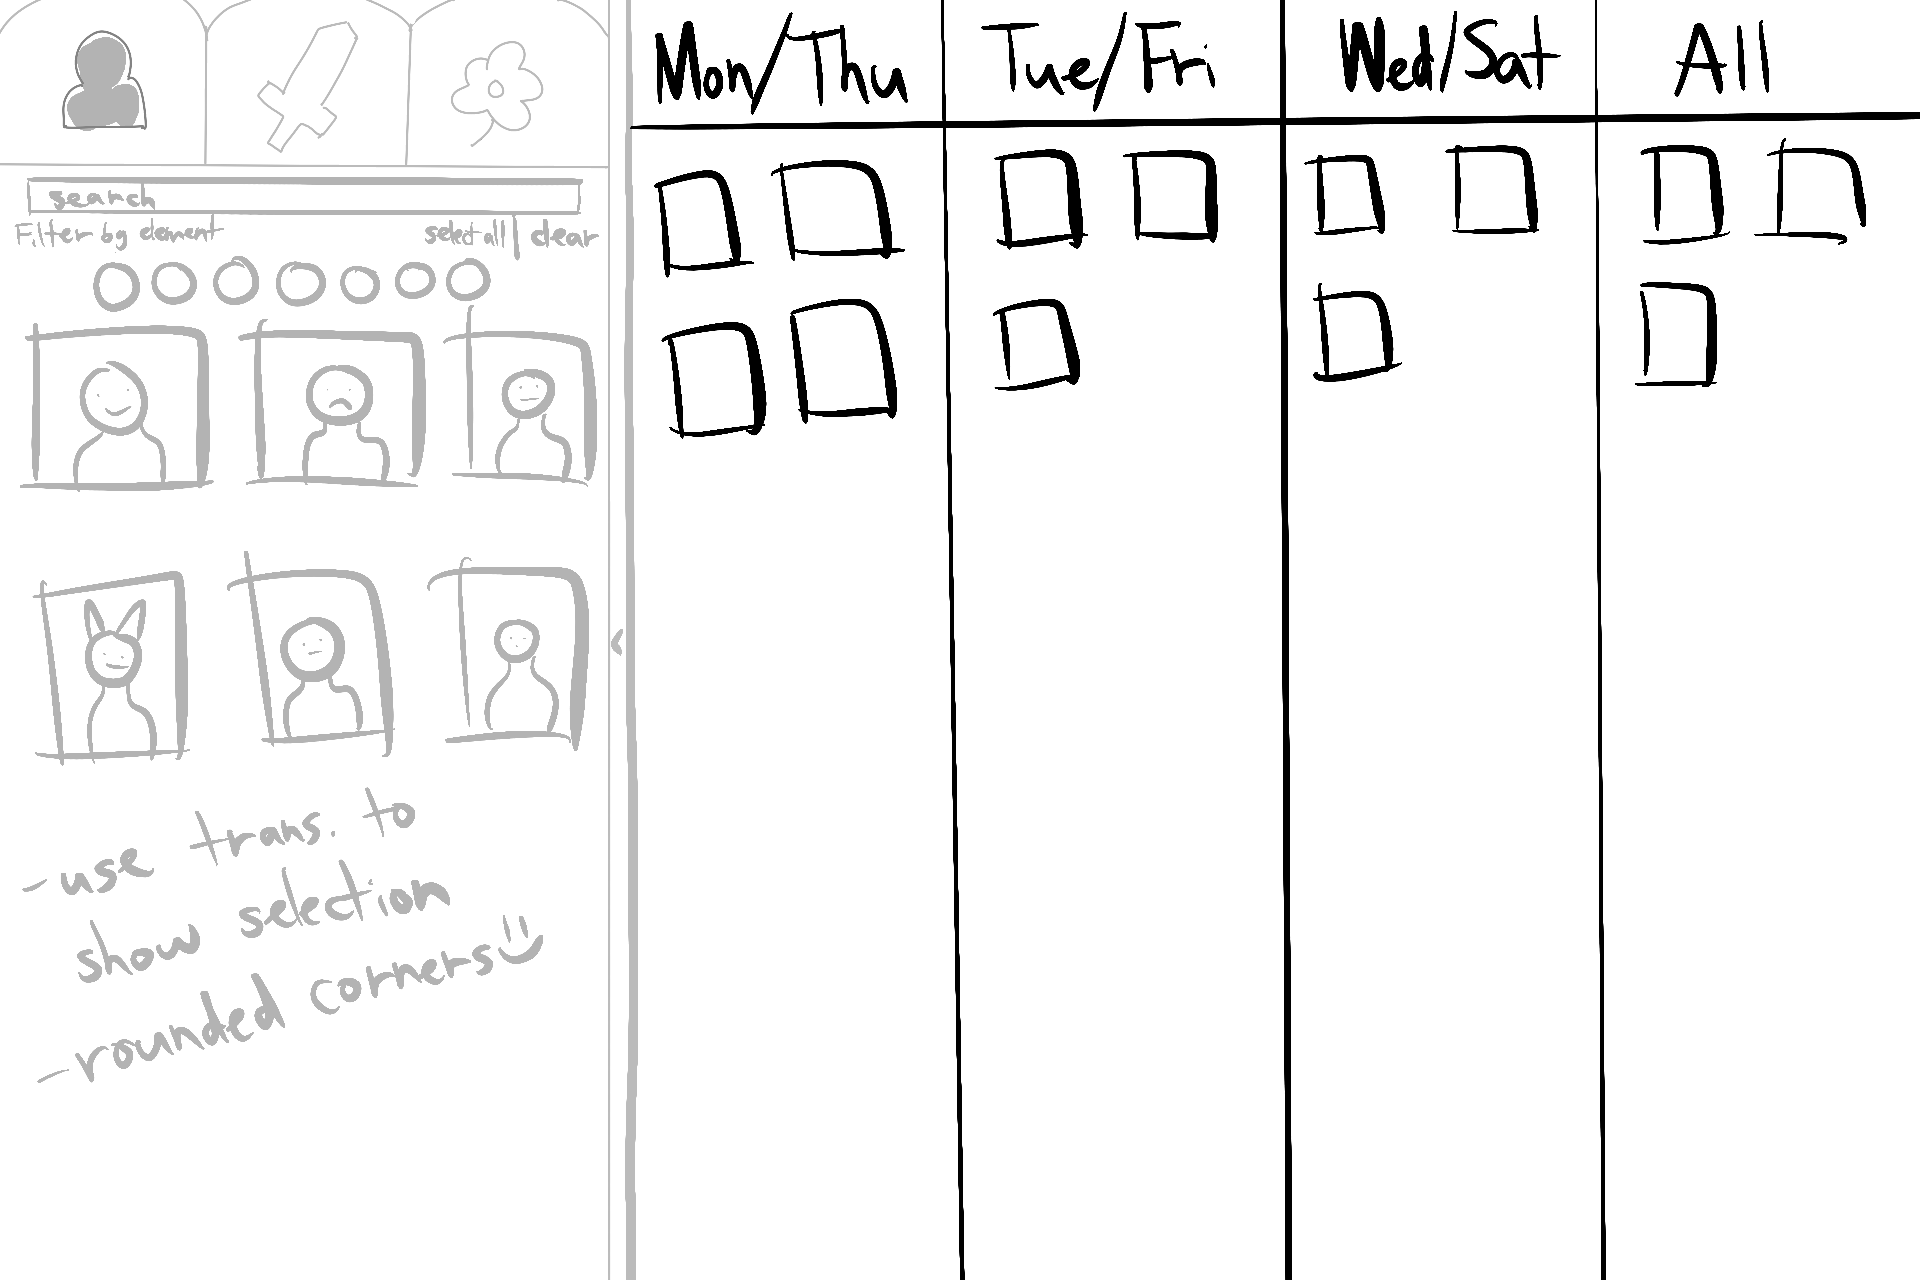 search
Filter by element
select all | clear
- use trans. to
show selection
- rounded corners
Mon/Thu
Tue/Fri
Wed/Sat
All